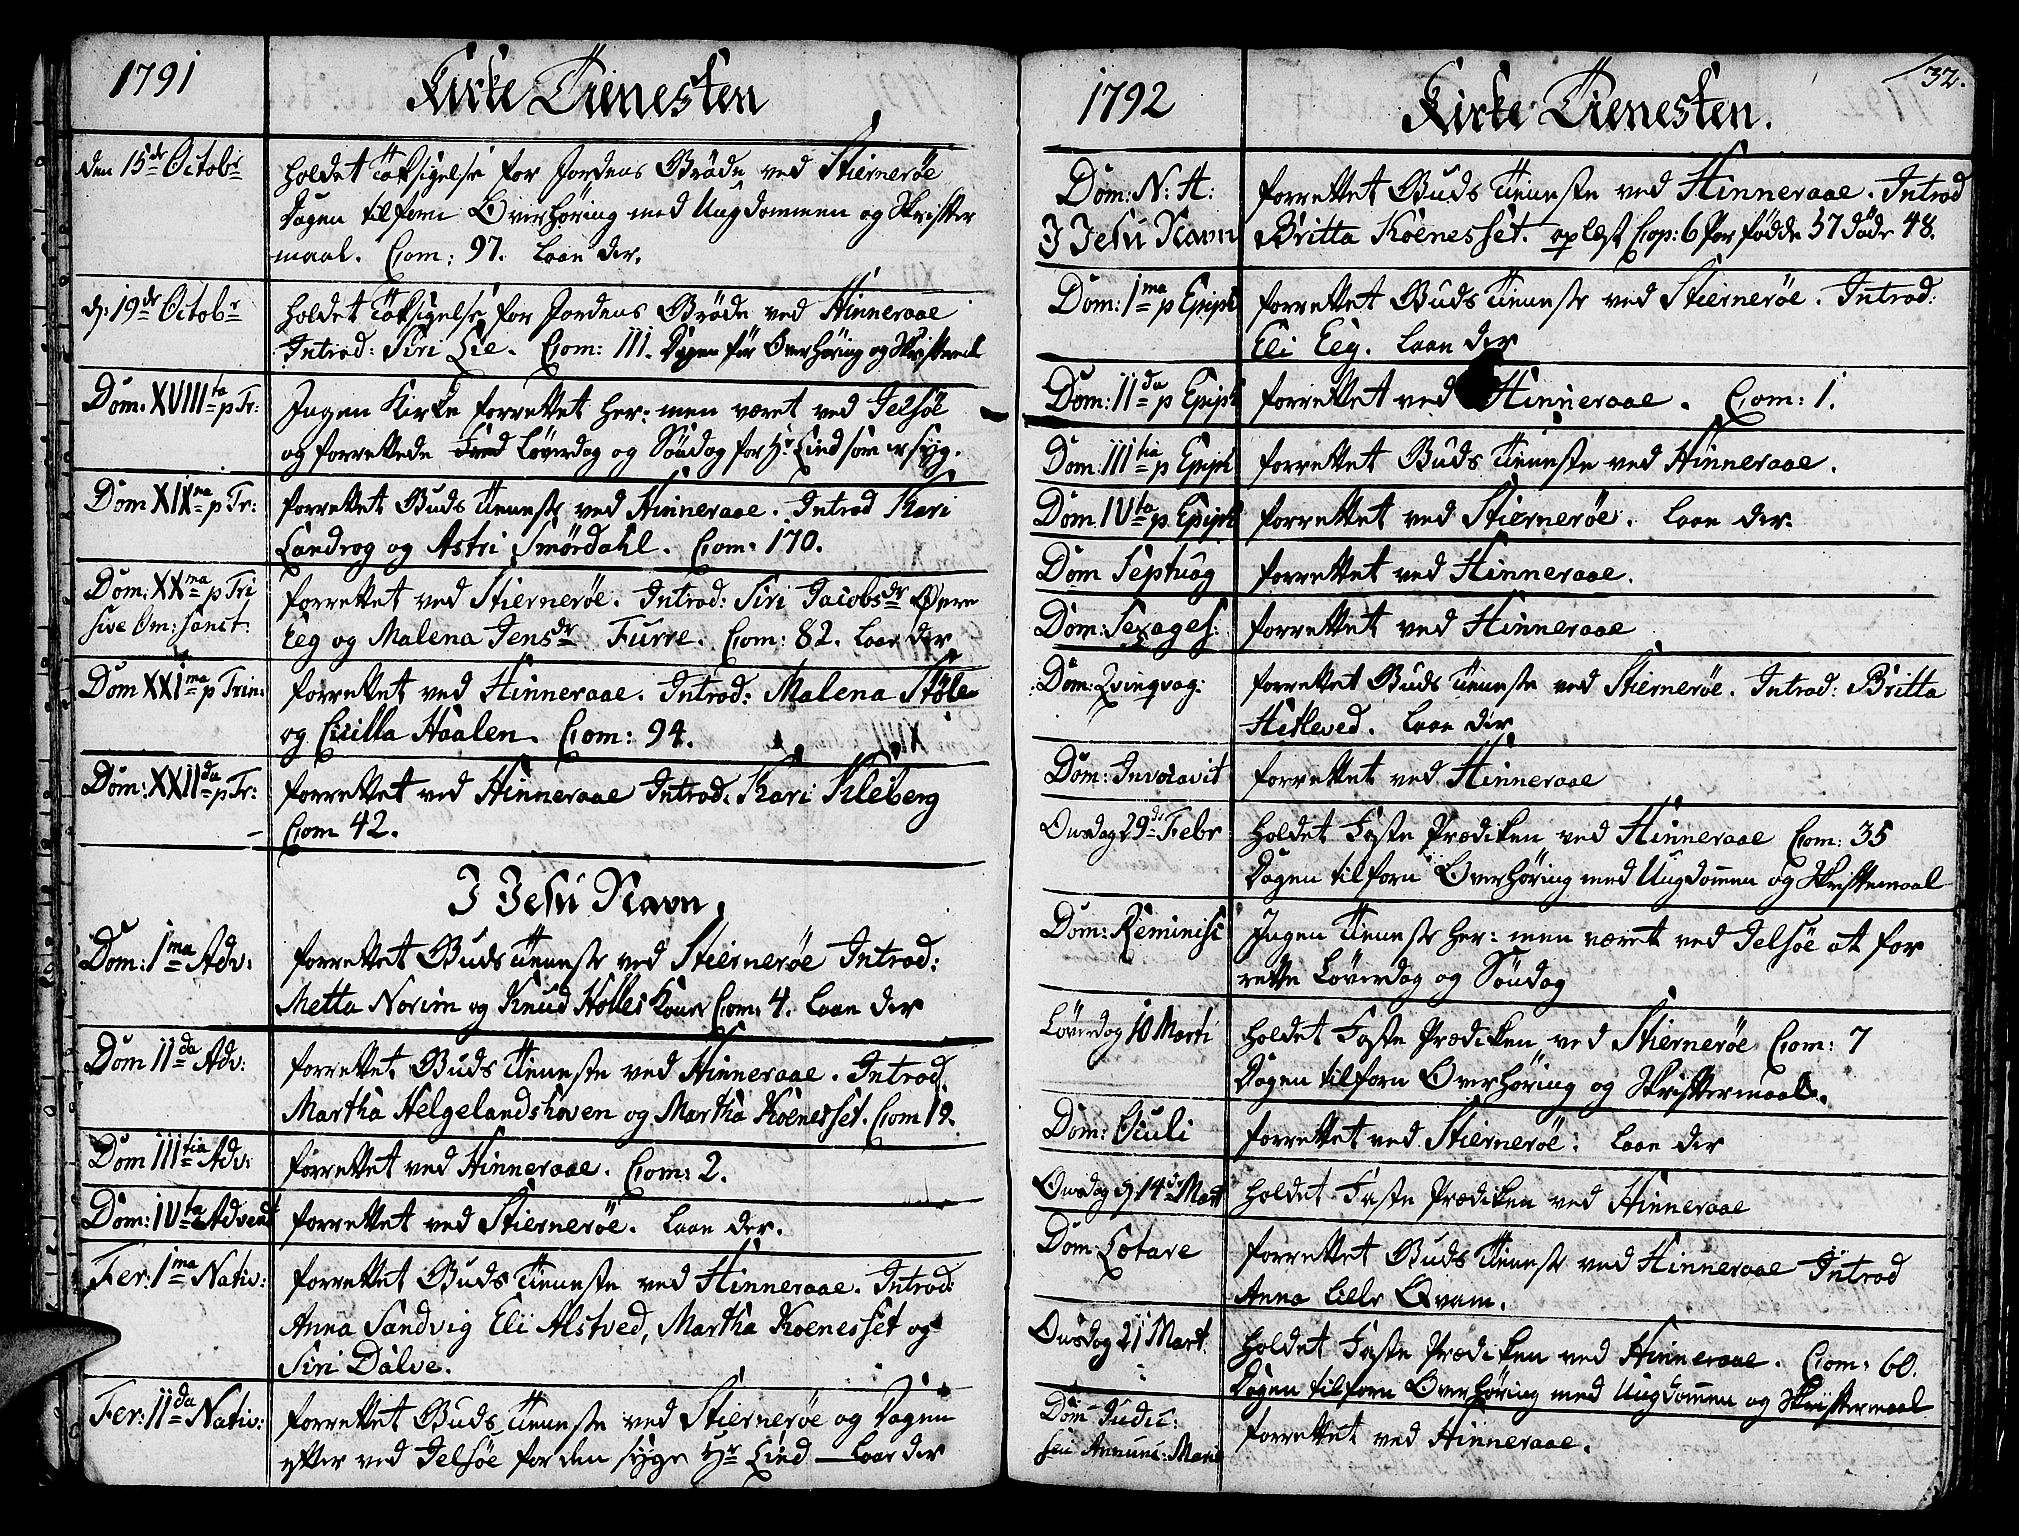 1791
Kirke Tienesten
den 15de Octobr
holdet Taksigelse for Jordens Grøde ved Stiernerøe
Dagen tilforn Overhøring med Ungdommen og Skrifter
maal. Com: 97. Laae der.
d: 19de Octobr
holdet Taksigelse for Jordens Grøde ved Hinneraae
Introd: Siri Lie. Com: 111. Dagen før Overhøring og
Dom: XVIIIta p Tr:
Ingen Kirke forrettet her: men været ved Jelsøe
og forrettede Løverdag og Søndag for Hr Lind som er syg.
Dom XIXna p Tr:
forrettet Guds Tieneste ved Hinneraae. Introd Kari
Landrog og Astri Smørdahl. Com: 170.
Dom: XXma p Tri
sive Om: Sanct:
forrettet ved Stiernerøe. Introd: Siri Jacobsdr Øvre
Eeg og Malena Jensdr Furre. Com: 82. Laae der
Dom XXIma p Trin:
forrettet ved Hinneraae. Introd: Malena Støle
og Cicilla Haalen. Com: 94.
Dom: XXIIda p Tr:
forrettet ved Hinneraae Introd: Kari Kleberg
Com 42.
I Jesu Navn.
Dom: 1ma Adv:
forrettet Guds Tieneste ved Stiernerøe Introd:
Metta Norim og Knud Holles Kone Com: 4. Laae der
Dom IIda Adv:
forrettet Guds Tieneste ved Hinneraae. Introd.
Martha Helgelandshaven og Martha Koenesset. Com 19.
Dom IIItia Adv:
forrettet ved Hinneraae. Com: 2.
Dom: IVta Advent
forrettet ved Stiernerøe. Laae der.
Fer: 1ma Nativ:
forrettet Guds Tieneste ved Hinneraae. Introd:
Anna Sandvig Eli Alstved, Martha Koenesset og
Siri Dalve.
Fer: IIda Nativ:
forrettet Guds Tieneste ved Stiernerøe og Dagen
efter ved Jelsøe for den syge Hr Lind — Laae der
1792
Kirke Tienesten.
32.
Dom: N: A:
I Jesu Navn
forrettet Guds Tieneste ved Hinneraae. Introd
Britta Koenesset. oplæst Cop: 6 Par fødde 57 døde 48.
Dom: 1ma p Epiph
forrettet Guds Tieneste ved Stiernerøe. Introd:
Eli Eeg. Laae der
Dom: IIda p Epiph
forrettet ved Hinneraae. Com: 1.
Dom: IIItia p Epiph
forrettet Guds Tieneste ved Hinneraae.
Dom. IVta p. Epiph
forrettet ved Stiernerøe. Laae der.
Dom Septuag
forrettet ved Hinneraae.
Dom: Sexages:
forrettet ved Hinneraae
Dom: Qvinqvag:
forrettet Guds Tieneste ved Stiernerøe. Introd: Britta
Hetleved. Laae der
Dom: Invocavit
forrettet ved Hinneraae
Onsdag 29de Febr
holdet Faste Prædiken ved Hinneraae Com: 35
Dagen tilforn Overhøring med Ungdommen og Skriftemaal
Dom: Reminisc
Ingen Tieneste her: men været ved Jelsøe at for
rette Løverdag og Søndag
Løverdag 10 Marti
holdet Faste Prædiken ved Stiernerøe Com: 7
Dagen tilforn Overhøring og Skriftermaal.
Dom: Oculi
forrettet ved Stiernerøe: Laae der
Onsdag d 14de Mart
holdet Faste Prædiken ved Hinneraae
Dom: Lætare
forrettet Guds Tieneste ved Hinneraae Introd
Anna Lille Qvam.
Onsdag 21 Mart.
holdet Faste Prædiken ved Hinneraae. Com: 60.
Dagen tilforn Overhøring med Ungdommen og Skriftermaal
Dom Judic:
seu Annunc: Mariæ
forrettet ved Hinneraae.